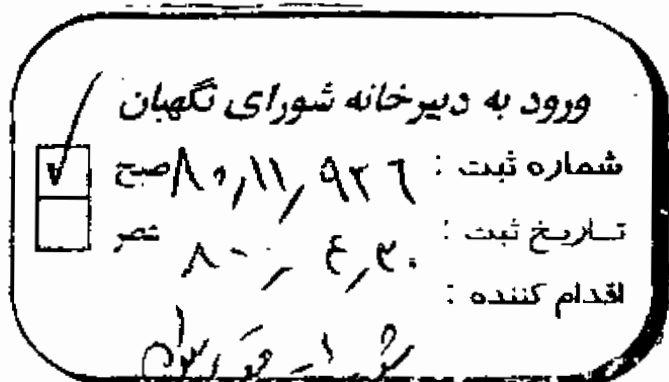 ورود به دبیرخانه شورای نگهبان
شماره ثبت : ۸۰٫۱۱٫۹۲۶ صبح
تاریخ ثبت : ۸۰٫۴٫۳۰ عصر
اقدام کننده :